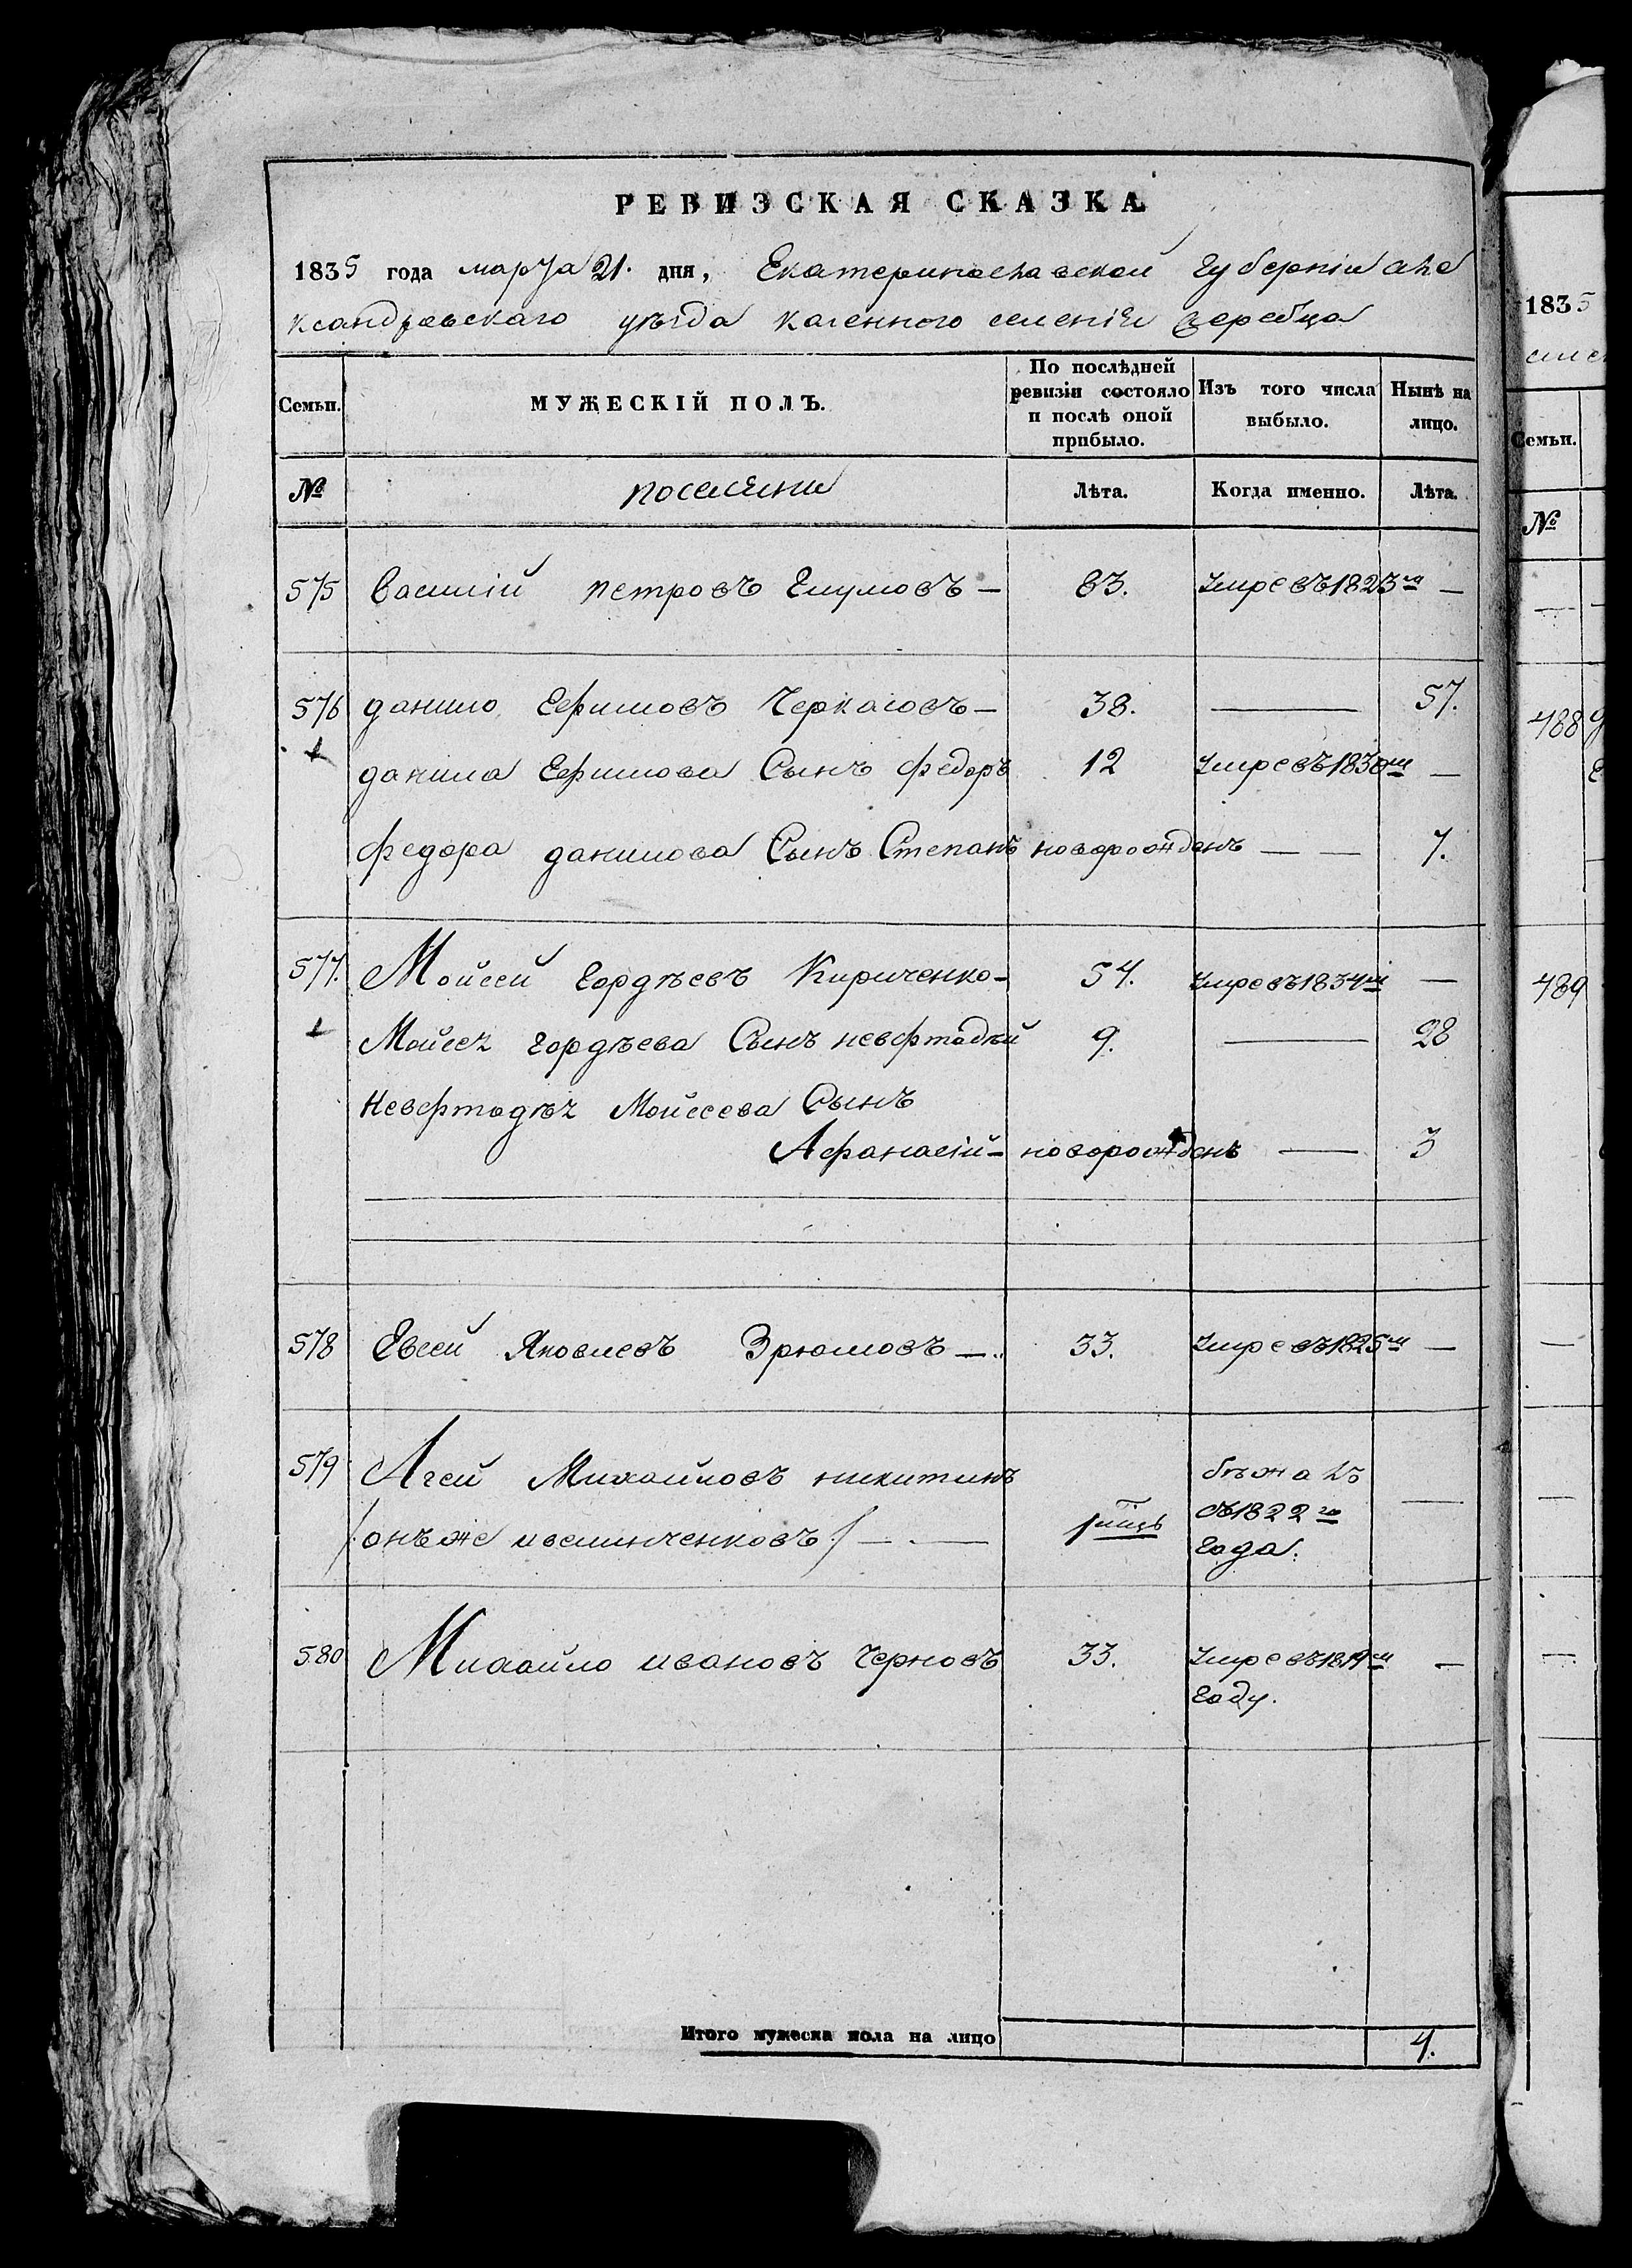 РЕВИЗСКАЯ СКАЗКА
1835 года марта 21. дня, Екатеринославской губерніи але
ксандровскаго уѣзда казенного селенія жеребца
Семьи. МУЖЕСКІЙ ПОЛЪ. По послѣдней ревизіи состояло и послѣ оной прибыло. Изъ того числа выбыло. Нынѣ на лицо.
№ поселяни Лѣта. Когда именно. Лѣта.
575 Василій петровъ Глумовъ — 63. умре въ 1823м —
576 данило Ефимовъ Черкасовъ — 38. — 57.
данила Ефимова Сынъ федоръ 12 умре въ 1830м —
федора данилова Сынъ Степанъ новорожденъ — — 7.
577. Мойсей гордѣевъ Кириченко — 54. умре въ 1834м —
Мойсея гордѣева Сынъ невфтодѣй 9. — 28
Невфтодѣя Мойсеева Сынъ
Афанасій — новорожденъ — 3
578 Евсей Яковлевъ Зрюмовъ — 33. умре въ 1825м —
579 Агей Михайловъ никитинъ бѣжалъ
/онъ же ивсинченковъ/ — — съ 1822го —
года.
580 Михайло ивановъ Черновъ 33. умре въ 1819м —
году.
Итого мужеска пола на лицо 4.
1835
Семьи.
№
488
489